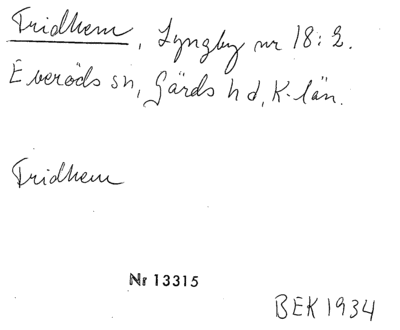 Fridhem, Lyngby nr 18:2.
Everöds sn, Gärds hd, K-län.
Fridhem
Nr 13315
BEK 1934